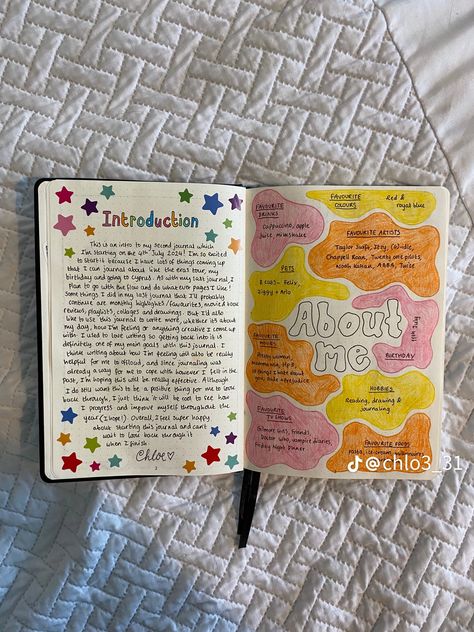 Introduction
This is an intro to my second journal which
I'm starting on the 4th July 2024! I'm so excited
to start it because I have lots of things coming up
that I can journal about like the eras tour, my
birthday and going to Cyprus. As with my last journal, I
plan to go with the flow and do what ever pages I like!
Some things I did in my last journal that I'll probably
continue are monthly highlights/favourites, movie & book
reviews, playlists, collages and drawings. But I'd also
like to use this journal to write more whether it's about
my day, how I'm feeling or anything creative I come up
with. I used to love writing so getting back into it is
definitely one of my main goals with this journal. I
think writing about how I'm feeling will also be really
helpful for me to offload, and since journaling was
already a way for me to cope with however I felt in the
past, I'm hoping this will be really effective. Although
I do still want this to be a positive thing for me to look
back through, I just think it will be cool to see how
I progress and improve myself throughout the
year (I hope!). Overall, I'm super happy
about starting this journal and can't
wait to look back through it
when I finish
Chloe♡
FAVOURITE
DRINKS
Cappuccino, apple
juice, milkshake
FAVOURITE
COLOURS
Red &
royal blue
FAVOURITE ARTISTS
Taylor Swift, Izzy, (G)-idle,
Chappell Roan, Twenty one pilots,
Noah Kahan, ABBA, Twice
PETS
3 cats - Felix,
Ziggy + Arlo
About
me
11th July
BIRTHDAY
FAVOURITE
MOVIES
Pretty woman
10 things I hate about
you, Pride + prejudice
HOBBIES
Reading, drawing &
journaling
FAVOURITE
TV SHOWS
Gilmore Girls, Friends,
Doctor Who, Vampire Diaries,
Friday Night Dinner
FAVOURITE FOODS
Pasta, ice-cream
@chlo3_31